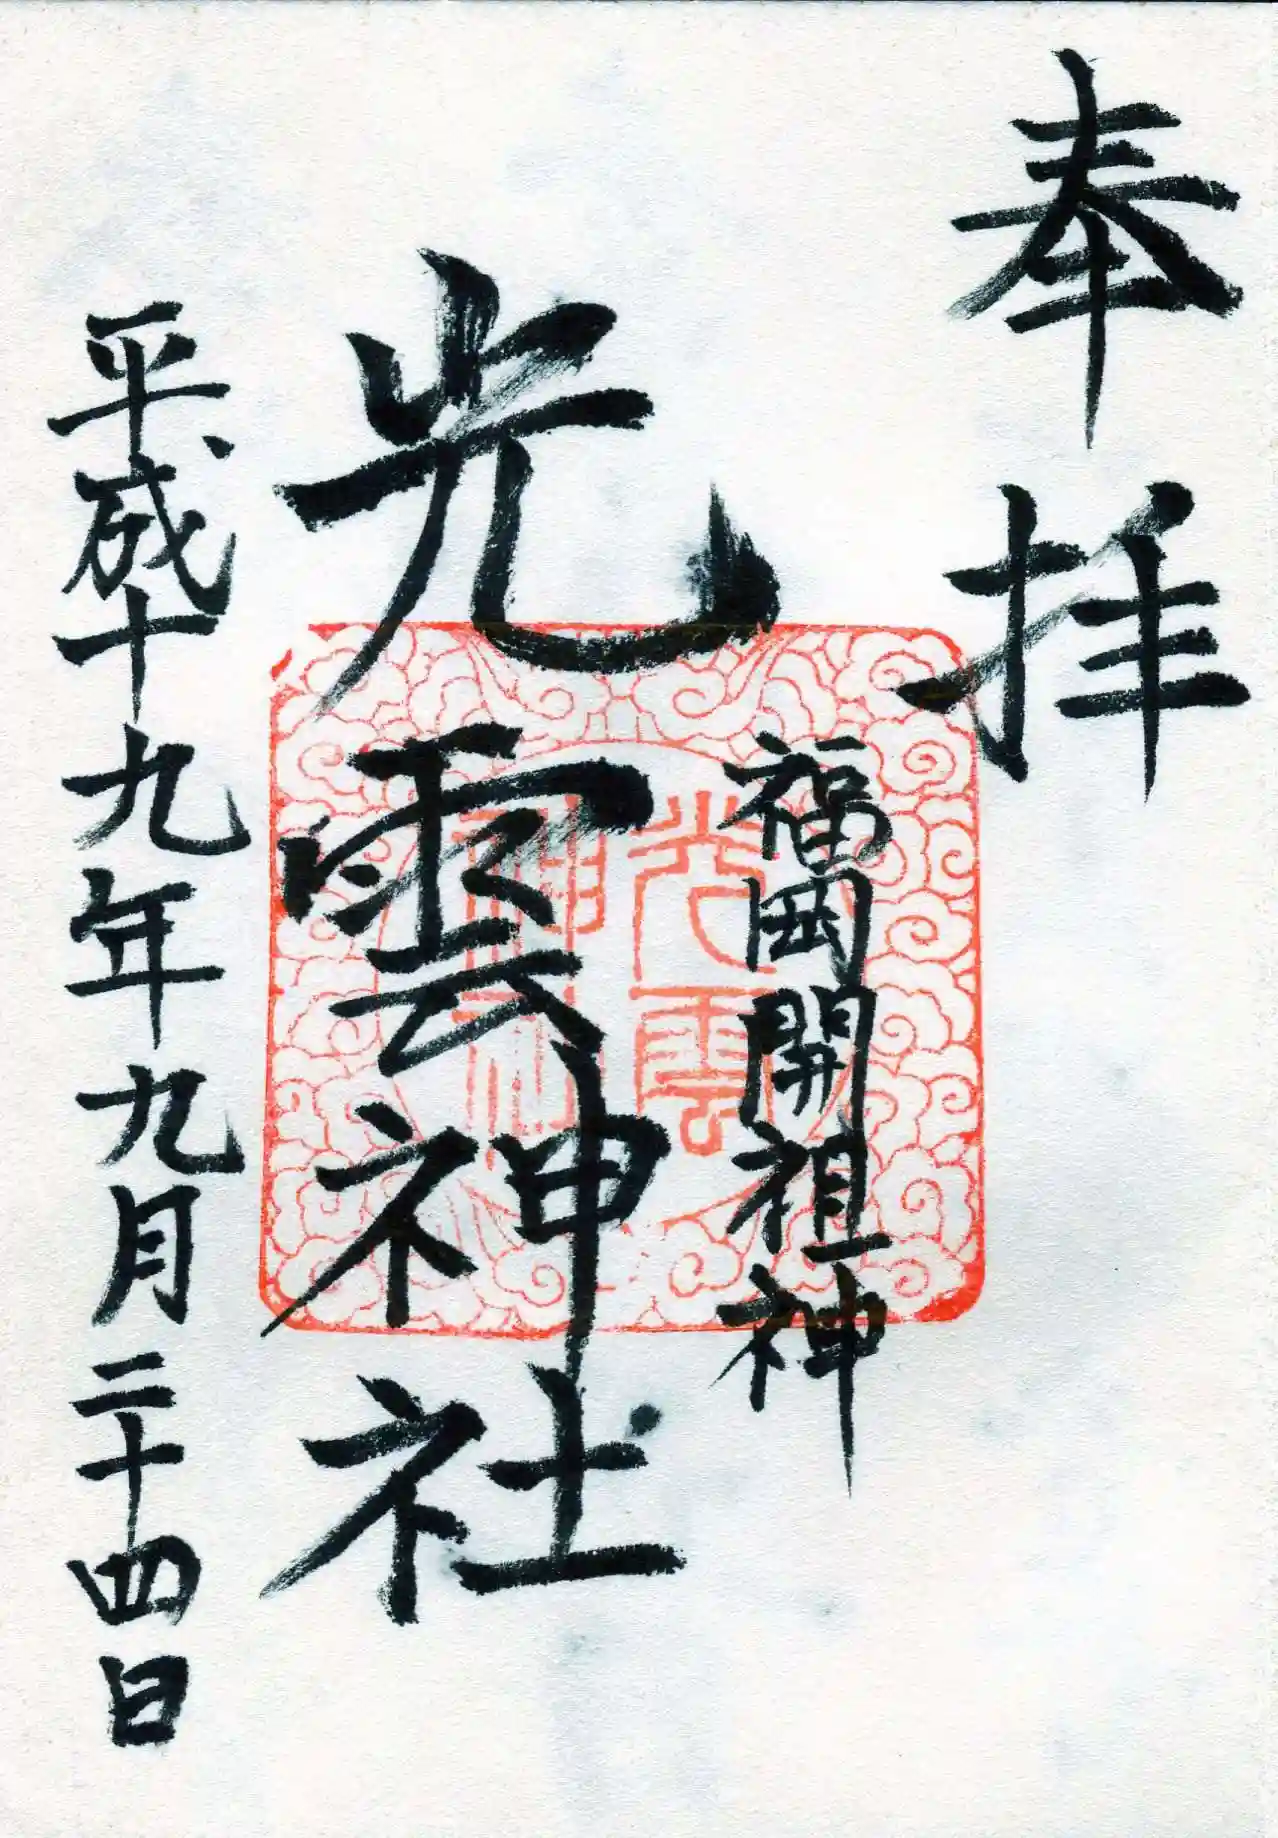 奉拝
福岡開祖神
光雲神社
平成十九年九月二十四日
光雲
神社